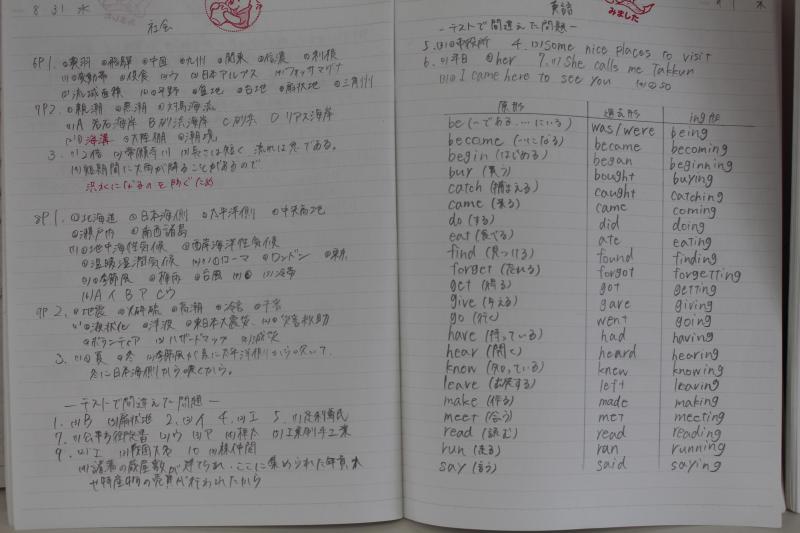 8 31 水
社会
6P 1. 奥羽 飛騨 中国 九州 関東 信濃 利根
変動帯 侵食 ウ 日本アルプス フォッサマグナ
流域面積 平野 盆地 台地 扇状地 三角州
7P 2. 親潮 黒潮 対馬海流
A 岩石海岸 B 砂浜海岸 C 砂丘 D リアス海岸
海溝 大陸棚 潮境
3. 2倍 常願寺川 長さは短く 流れは急である。
短期間に大雨が降ることがあるので
洪水になるのを防ぐため
8P 1. 北海道 日本海側 太平洋側 中央高地
瀬戸内 南西諸島
地中海性気候 西岸海洋性気候
温暖湿潤気候 ローマ ロンドン 東京
季節風 梅雨 台風 冷帯
A イ B ア C ウ
9P 2. 地震 高潮 冷害 干害
液状化 津波 東日本大震災 災害救助
ボランティア ハザードマップ 減災
3. 夏 冬 季節風が夏に太平洋側からの吹いて、
冬に日本海側から吹くから。
ーテストで間違えた問題ー
1. B 扇状地 2. イ 4. エ 5.
7. 公事方御定書 ウ ア 樺太 工業
9. エ 戦国大名 10 株仲間
諸藩の蔵屋敷が建てられ、ここに集められた年貢米
や特産物の売買が行われたから
英語
みました
ーテストで間違えた問題ー
5. 市役所 4. Some nice places to visit
6. 平日 her 7. She calls me Takkun
I came here to see you so
原形 過去形 ing形
be (〜である…にいる) was/were being
become (…になる) became becoming
begin (はじめる) began beginning
buy (買う) bought buying
catch (捕まえる) caught catching
came (来る) came coming
do (する) did doing
eat (食べる) ate eating
find (見つける) found finding
forget (忘れる) forgot forgetting
get (得る) got getting
give (与える) gave giving
go (行く) went going
have (持っている) had having
hear (聞く) heard hearing
know (知っている) knew knowing
leave (出発する) left leaving
make (作る) made making
meet (会う) met meeting
read (読む) read reading
run (走る) ran running
say (言う) said saying